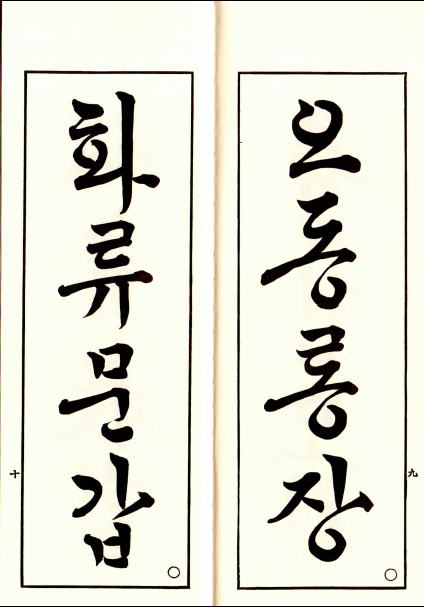 오동롱장
九
화류문갑
十